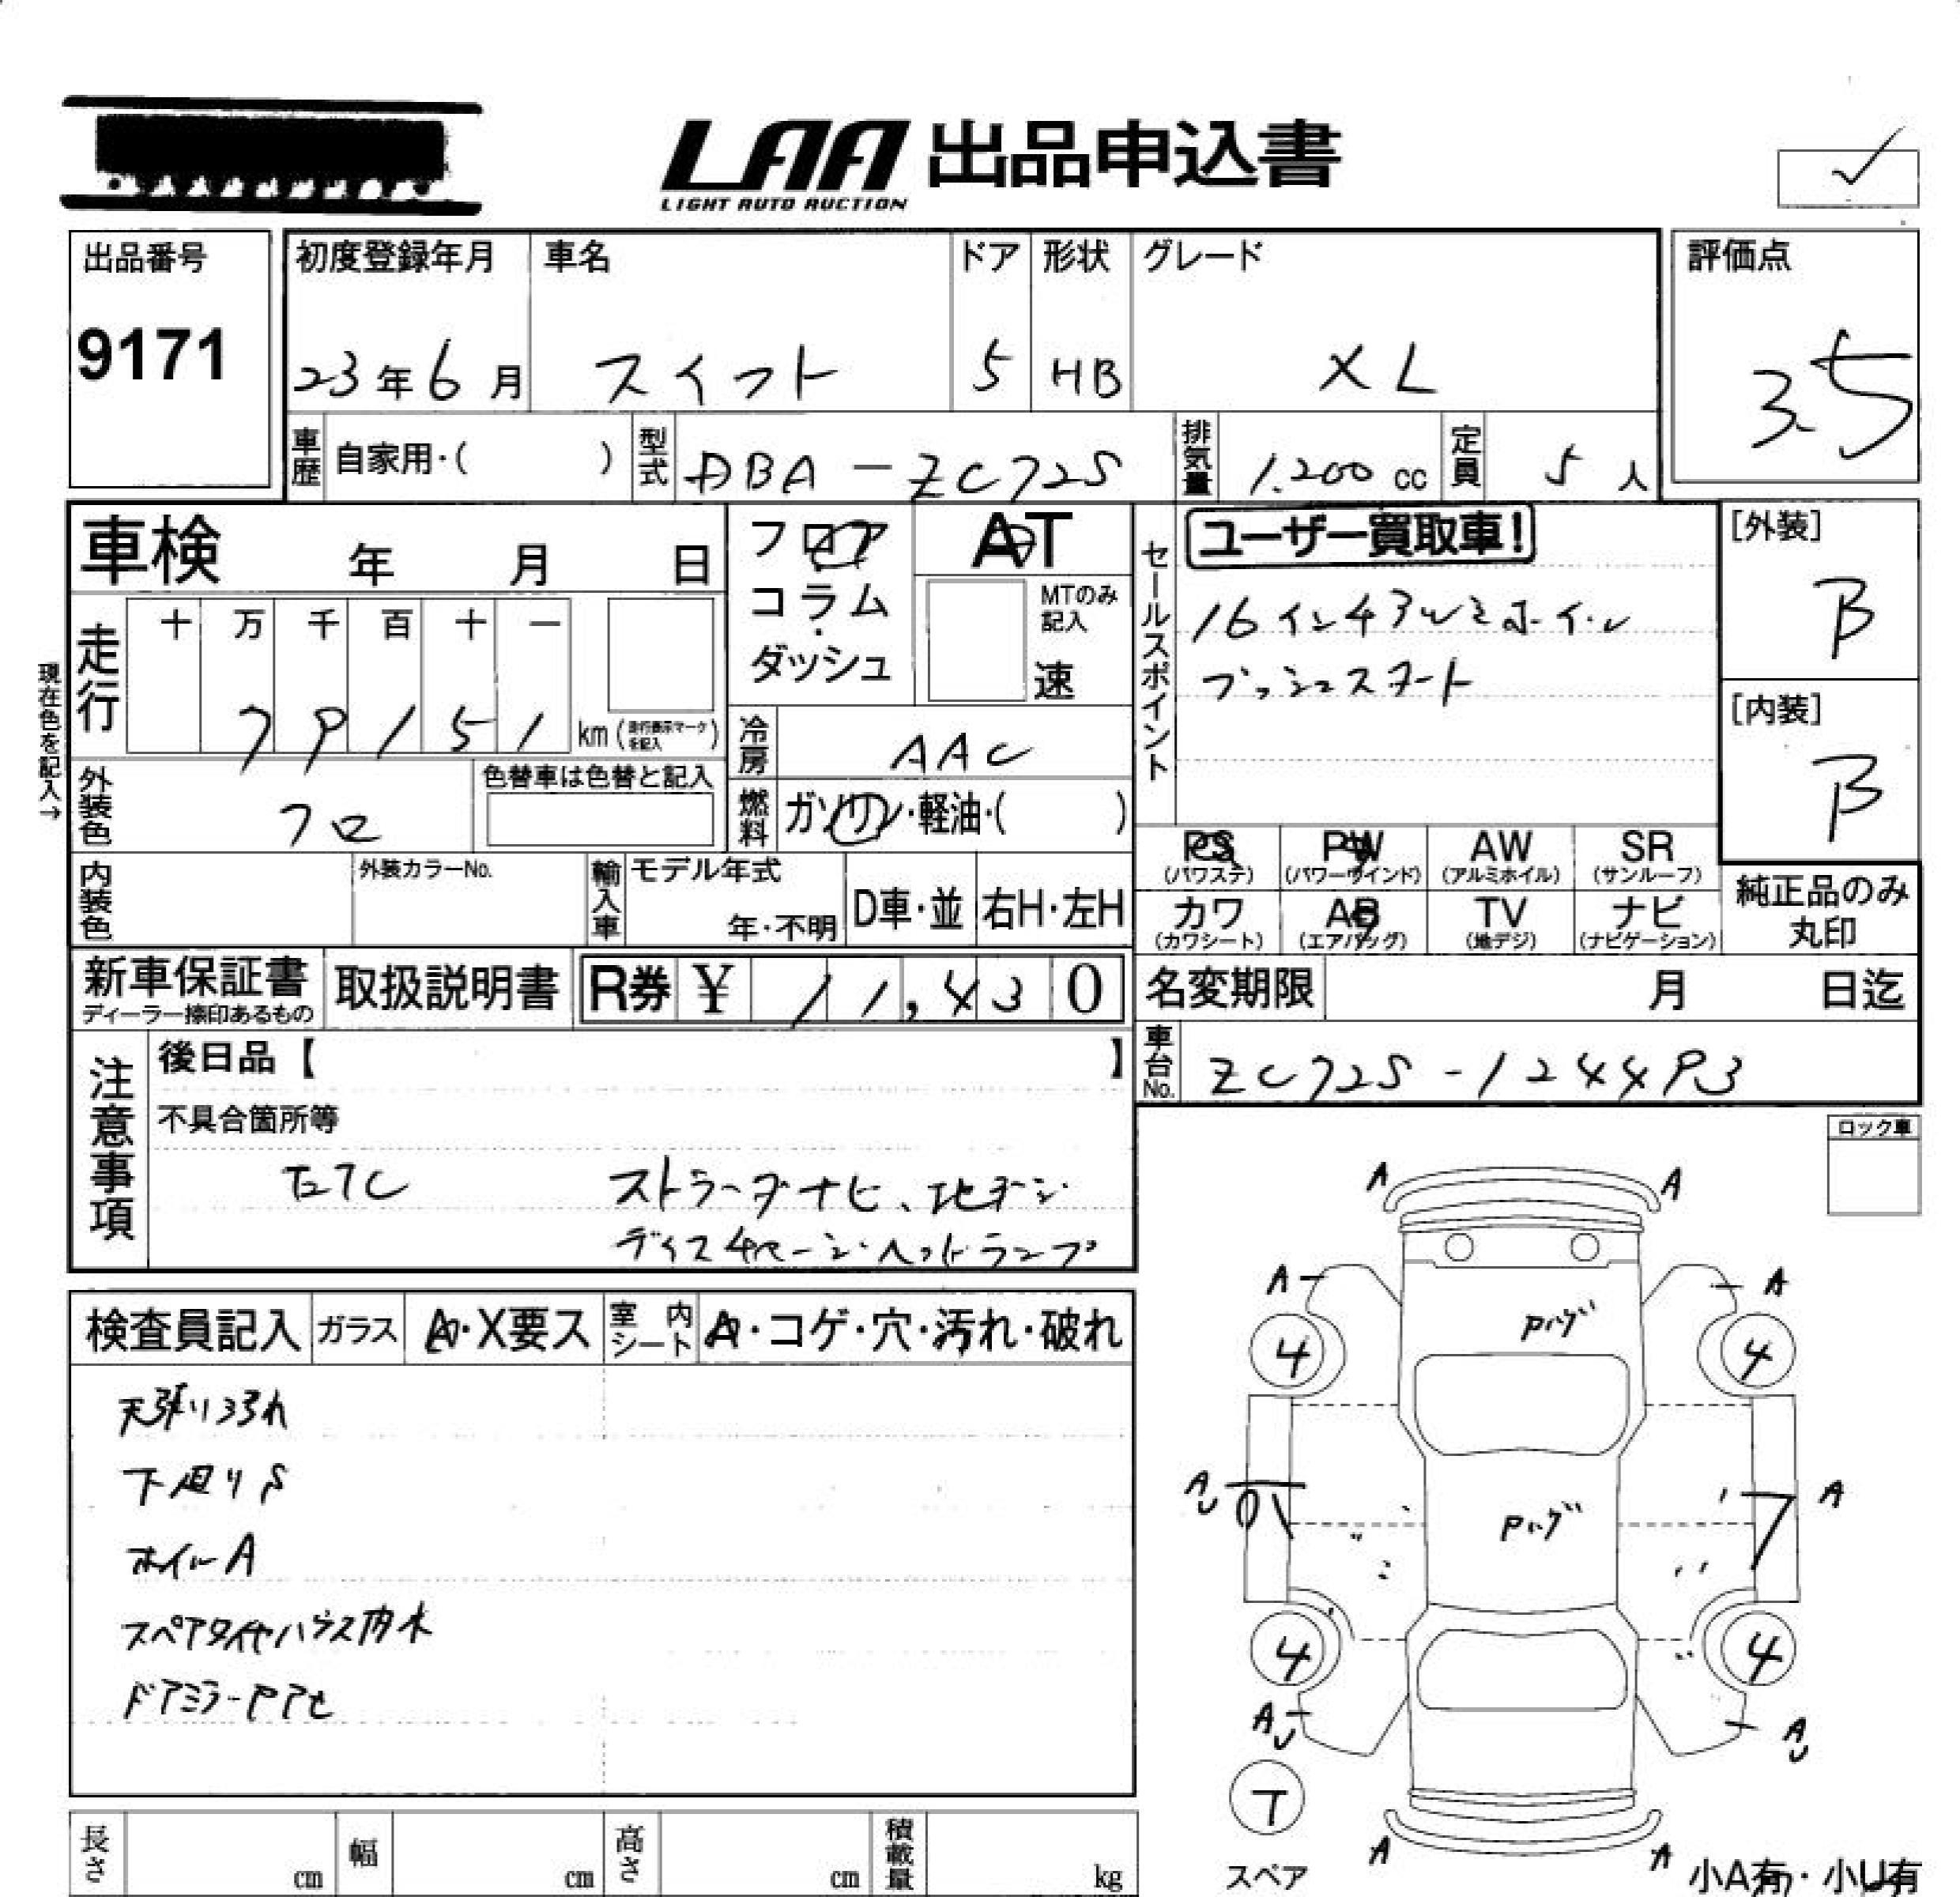 LAA 出品申込書
LIGHT AUTO AUCTION
出品番号
9171
初度登録年月
23年6月
車名
スイフト
ドア
5
形状
HB
グレード
XL
評価点
3.5
車歴
自家用・( )
型式
DBA-ZC72S
排気量
1.200 cc
定員
5 人
車検 年 月 日
フロア
コラム
・
ダッシュ
AT
MTのみ
記入
速
セールスポイント
ユーザー買取車!
16インチアルミホイール
プッシュスタート
[外装]
B
[内装]
B
現在色を記入→
走行
十 万 千 百 十 一
7 9 1 5 1 km (走行表示マークを記入)
冷房
AAC
外装色
クロ
色替車は色替と記入
燃料
ガソリン・軽油・( )
内装色
外装カラーNo.
輸入車
モデル年式
年・不明
D車・並
右H・左H
PS
(パワステ)
PW
(パワーウインド)
AW
(アルミホイル)
SR
(サンルーフ)
カワ
(カワシート)
AB
(エアバッグ)
TV
(地デジ)
ナビ
(ナビゲーション)
純正品のみ
丸印
新車保証書
ディーラー捺印あるもの
取扱説明書
R券 ¥ 11,430
名変期限 月 日迄
車台No.
ZC72S-124493
注意事項
後日品【 】
不具合箇所等
ETC ストラーダナビ、地デジ
ディスチャージヘッドランプ
ロック車
検査員記入
ガラス
A・X要ス
室内シート
A・コゲ・穴・汚れ・破れ
天張りヨゴれ
下廻りS
ホイルA
スペアタイヤハウス内水
ドアミラーPアセ
A A
A A
4 4
Pハゲ
A A
U
Pハゲ
4 4
A A
U U
T
スペア
A A
小A有・小U有
長さ cm
幅 cm
高さ cm
積載量 kg